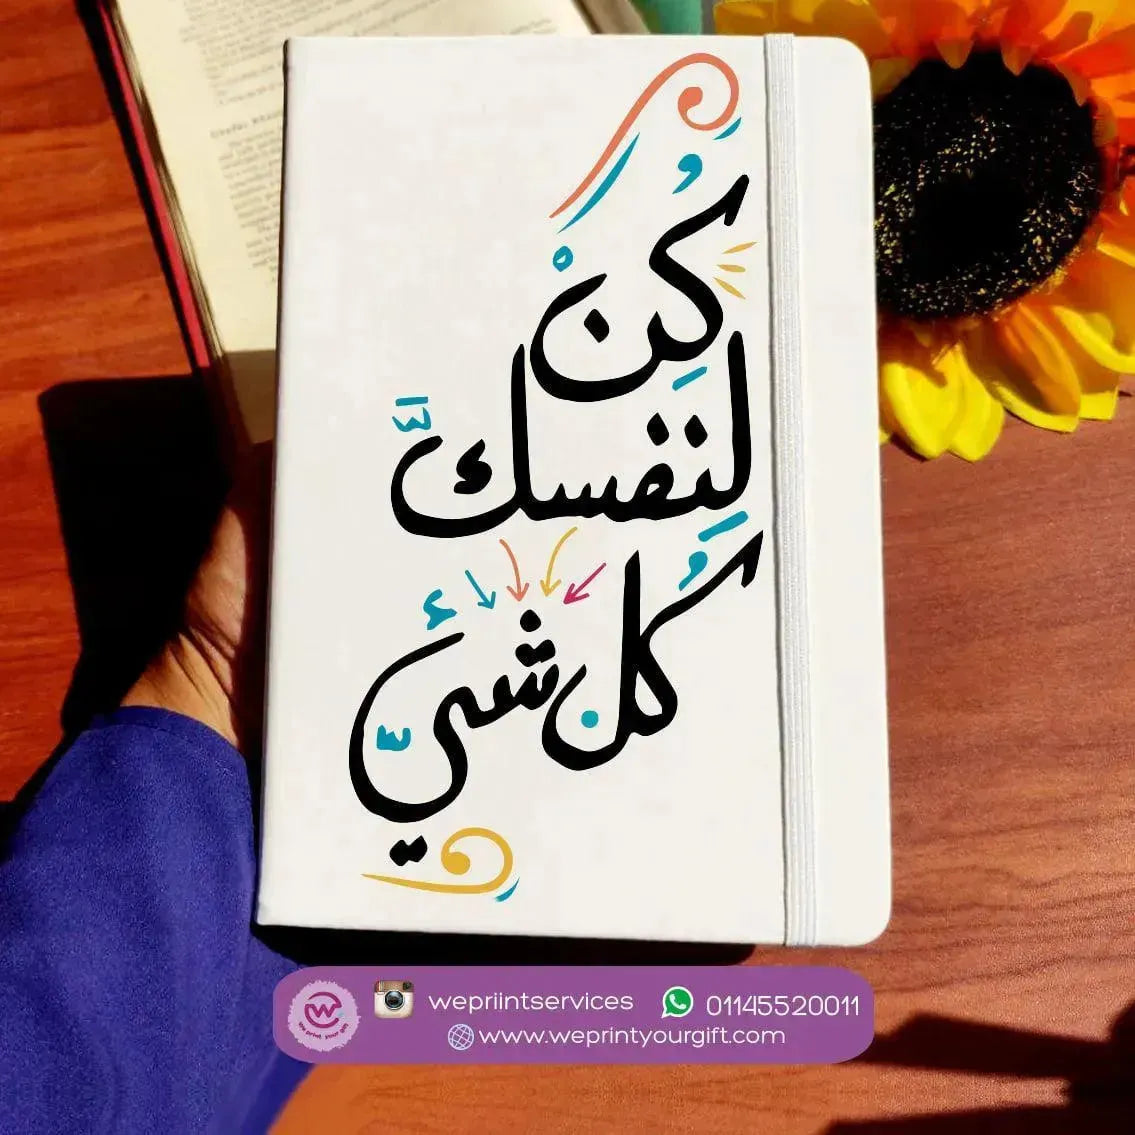 كُنْ
لِنفسكَّ
كُل شيء
wepriintservices 01145520011
www.weprintyourgift.com
we print your gift